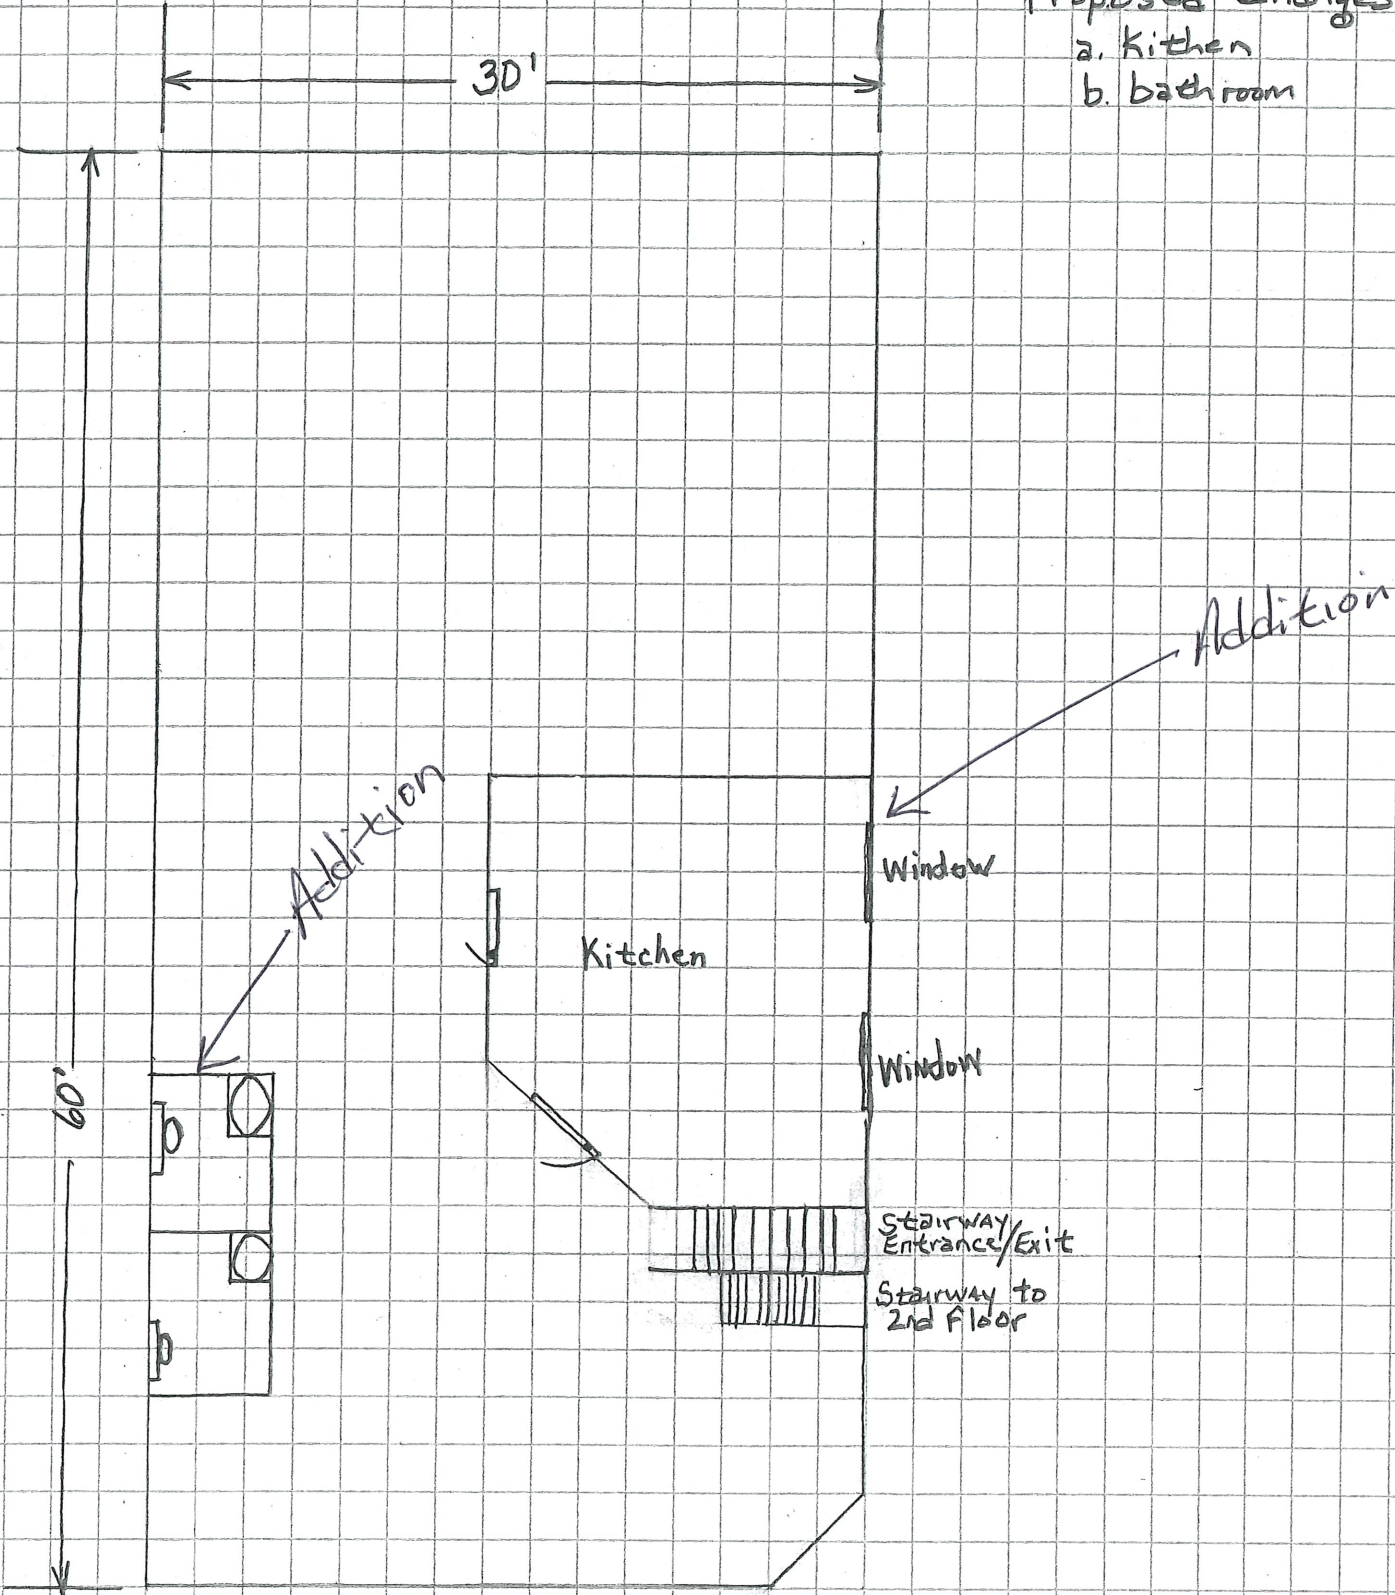 Proposed Changes
a. Kithen
b. bathroom
30'
Addition
Addition
Window
Kitchen
Window
60'
Stairway
Entrance/Exit
Stairway to
2nd Floor